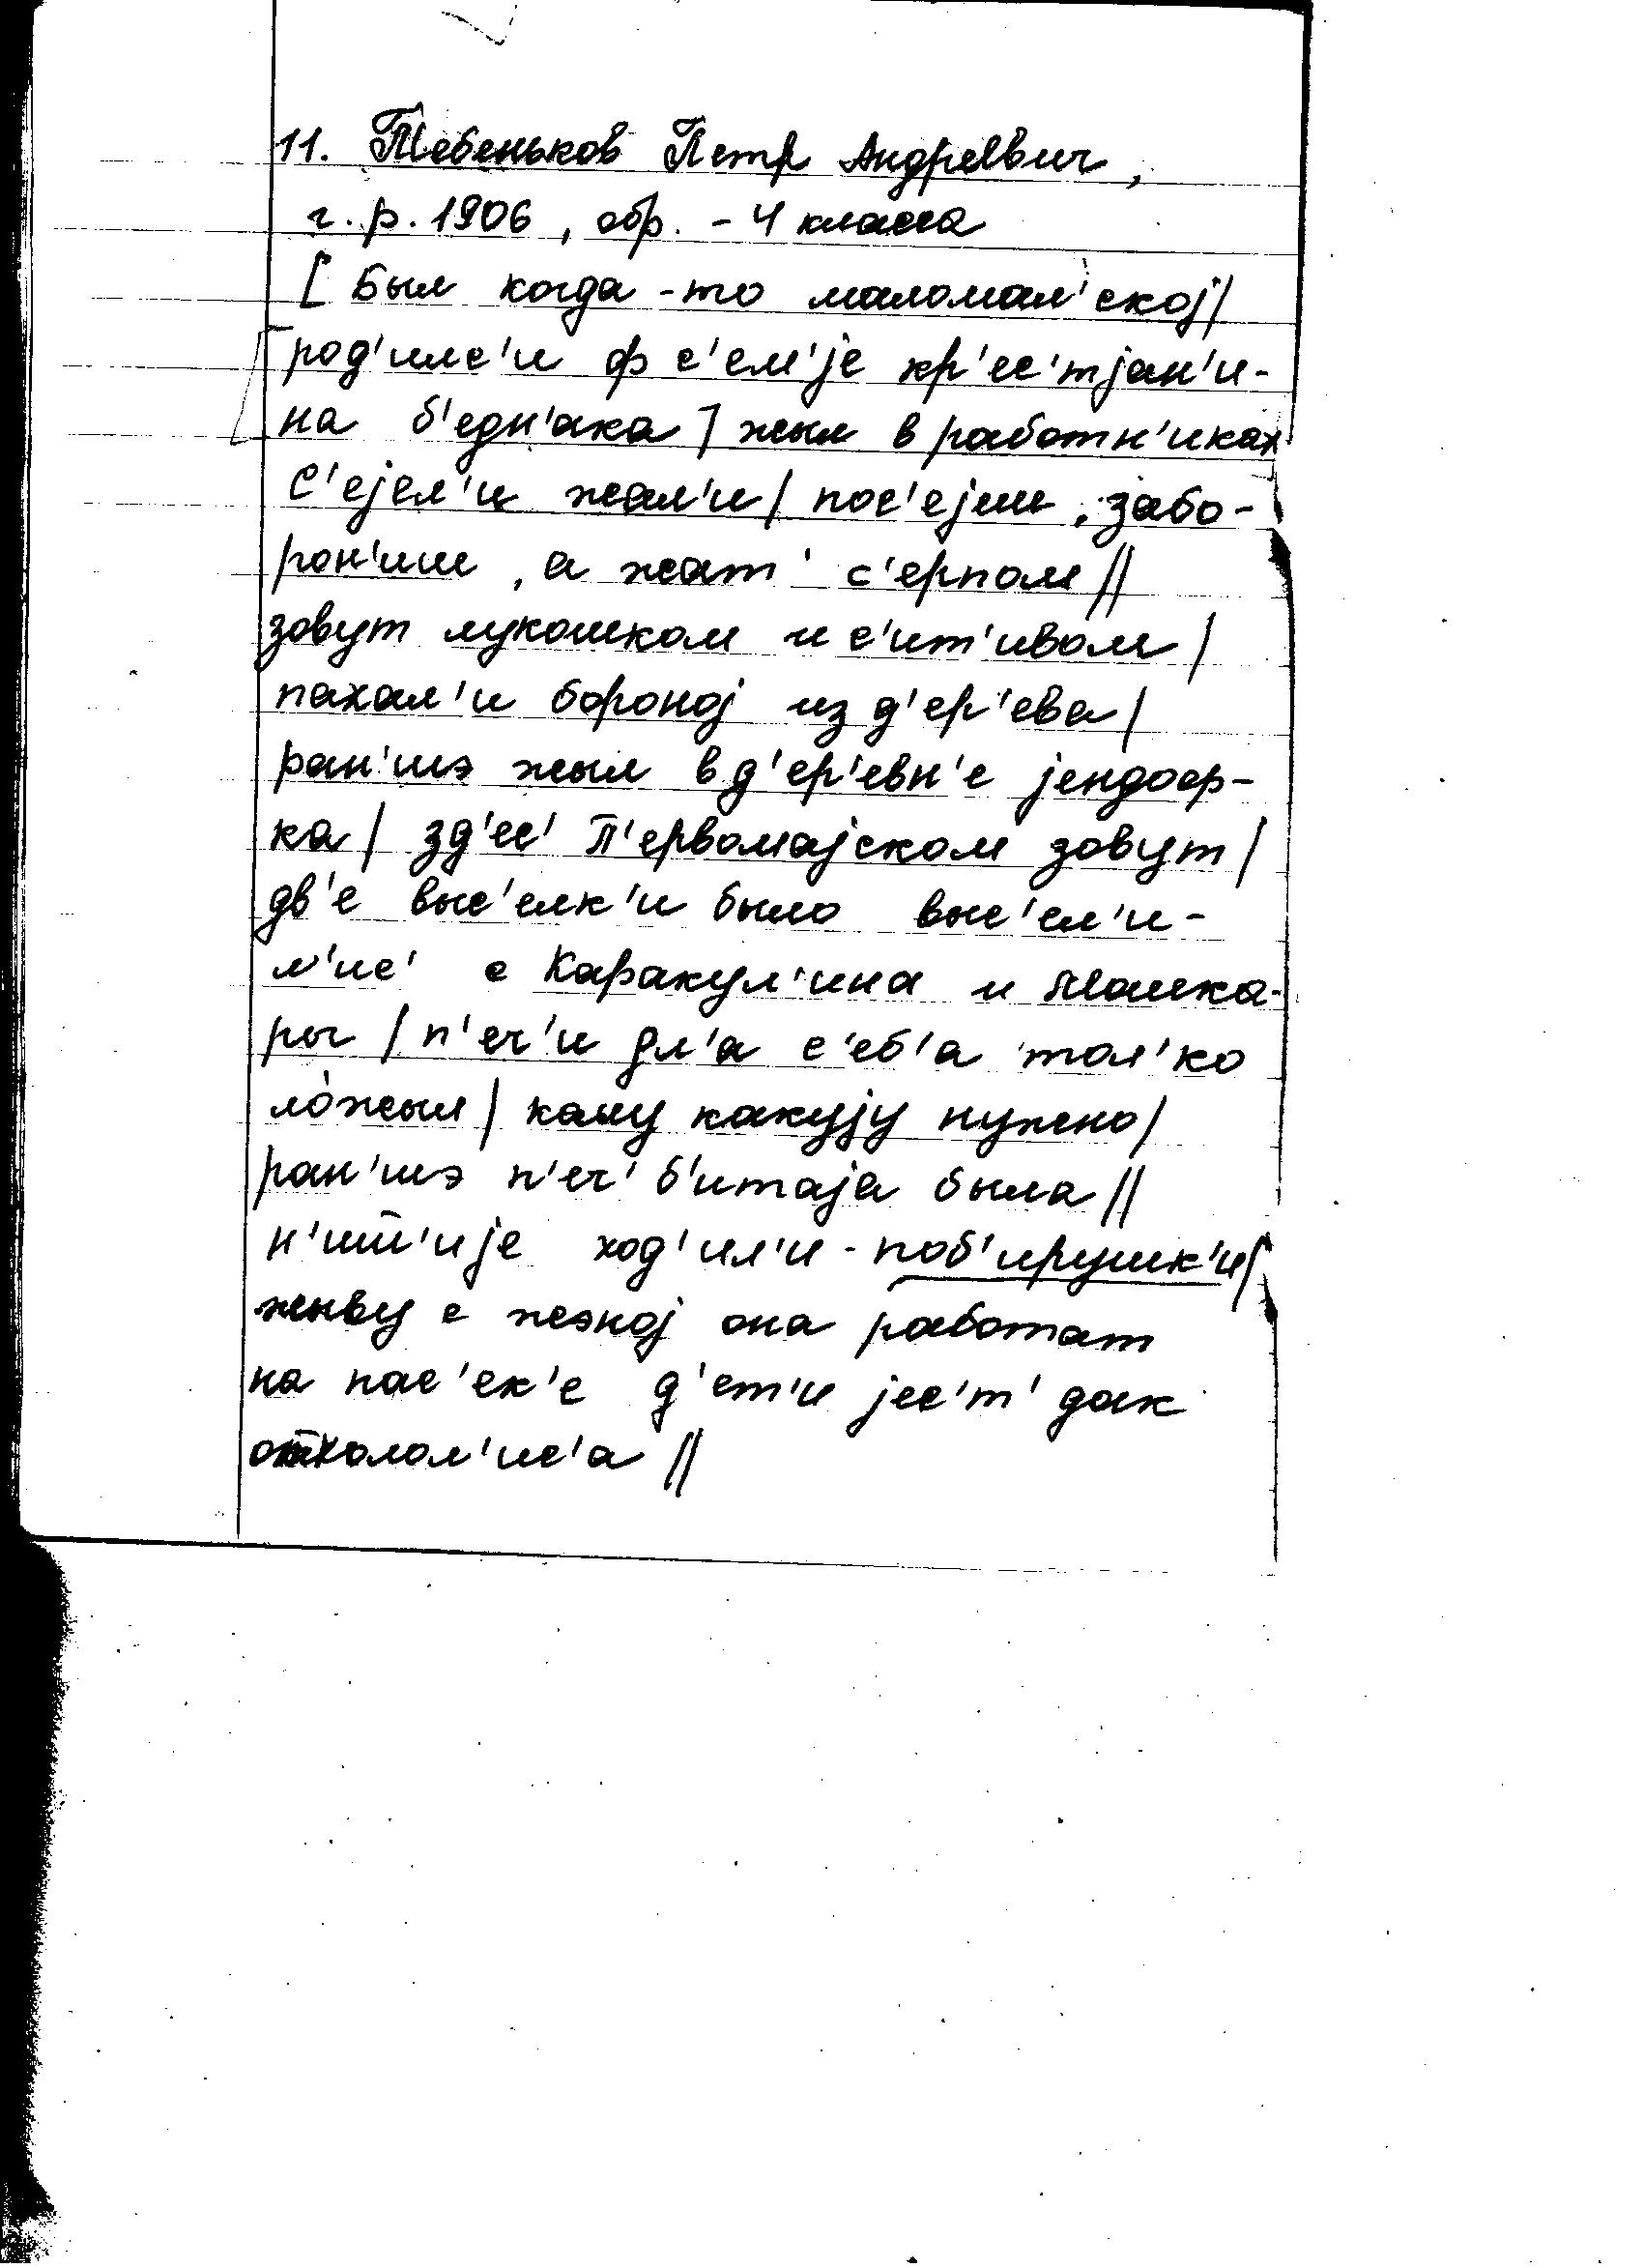 11. Тебеньков Петр Андреевич,
г.р. 1906, обр. - 4 класса
[ Был когда-то маломал'ской/
род'илс'и ф с'ем'је кр'ес'тјан'и-
на б'едн'ака ] жыл в работн'иках
С'ејел'и жал'и / пос'ејиш, забо-
рон'иш, а жат' с'ерпом //
зовут лукошком и с'ит'ивом /
пахал'и бороној из д'ер'ева /
ран'шэ жыл в д'ер'евн'е јендоср-
ка / зд'ес' П'ервомајском зовут /
дв'е выс'елк'и было выс'ел'и-
л'ис' с Каракул'ина и Машка-
ры / п'еч'и дл'а с'еб'а тол'ко
ло́жыл / каму какују нужно /
ран'шэ п'еч' б'итаја была //
н'ит'ије ход'ил'и - поб'ирушк'и /
жыву с жэној она работат
на пас'ек'е д'ет'и јес'т' дак
отколол'ис'а //